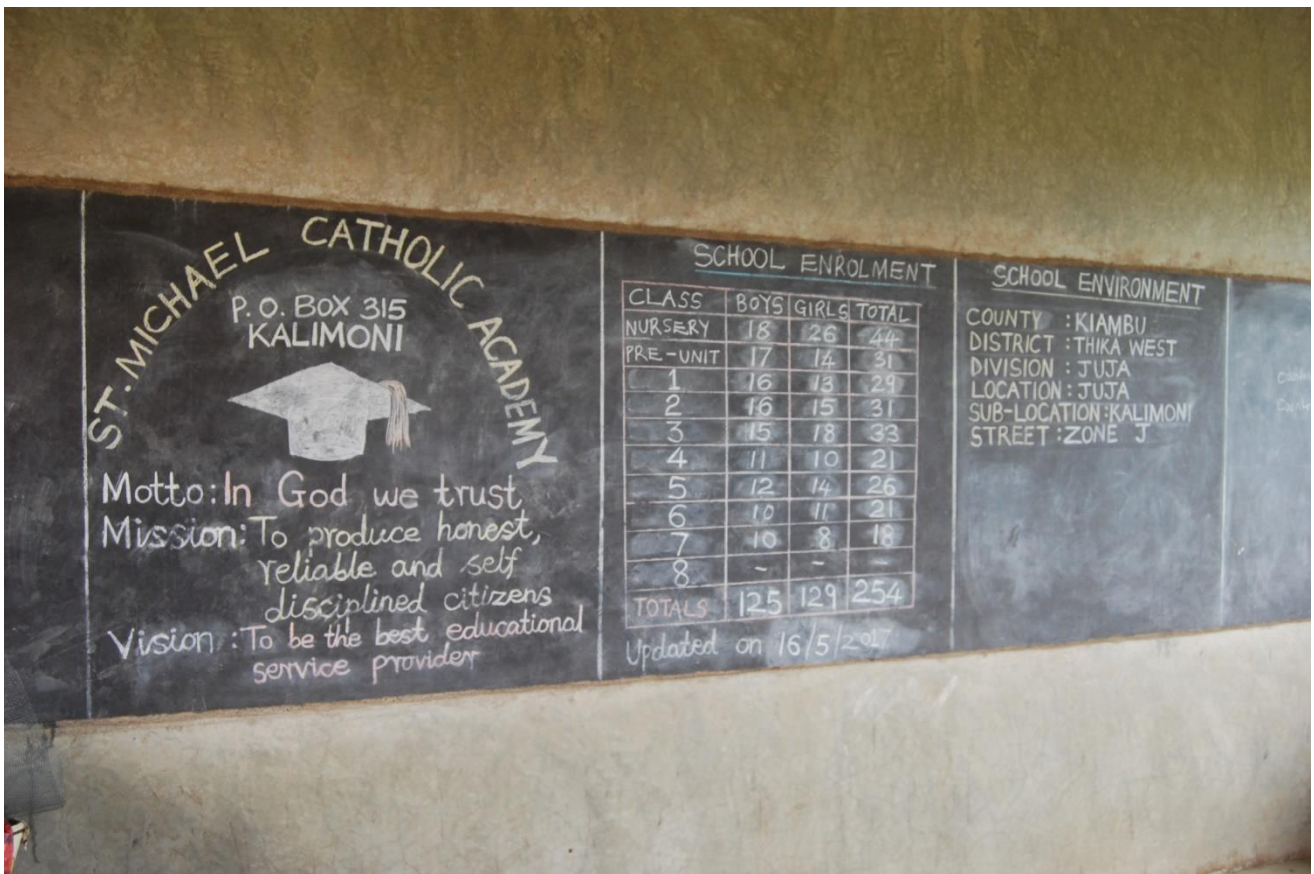 ST. MICHAEL CATHOLIC ACADEMY
P. O. BOX 315
KALIMONI
Motto: In God we trust
Mission: To produce honest,
reliable and self
disciplined citizens
Vision : To be the best educational
service provider
SCHOOL ENROLMENT
CLASS BOYS GIRLS TOTAL
NURSERY 18 26 44
PRE-UNIT 17 14 31
1 16 13 29
2 16 15 31
3 15 18 33
4 11 10 21
5 12 14 26
6 10 11 21
7 10 8 18
8 - - -
TOTALS 125 129 254
Updated on 16/5/2017
SCHOOL ENVIRONMENT
COUNTY : KIAMBU
DISTRICT : THIKA WEST
DIVISION : JUJA
LOCATION : JUJA
SUB-LOCATION : KALIMONI
STREET : ZONE J